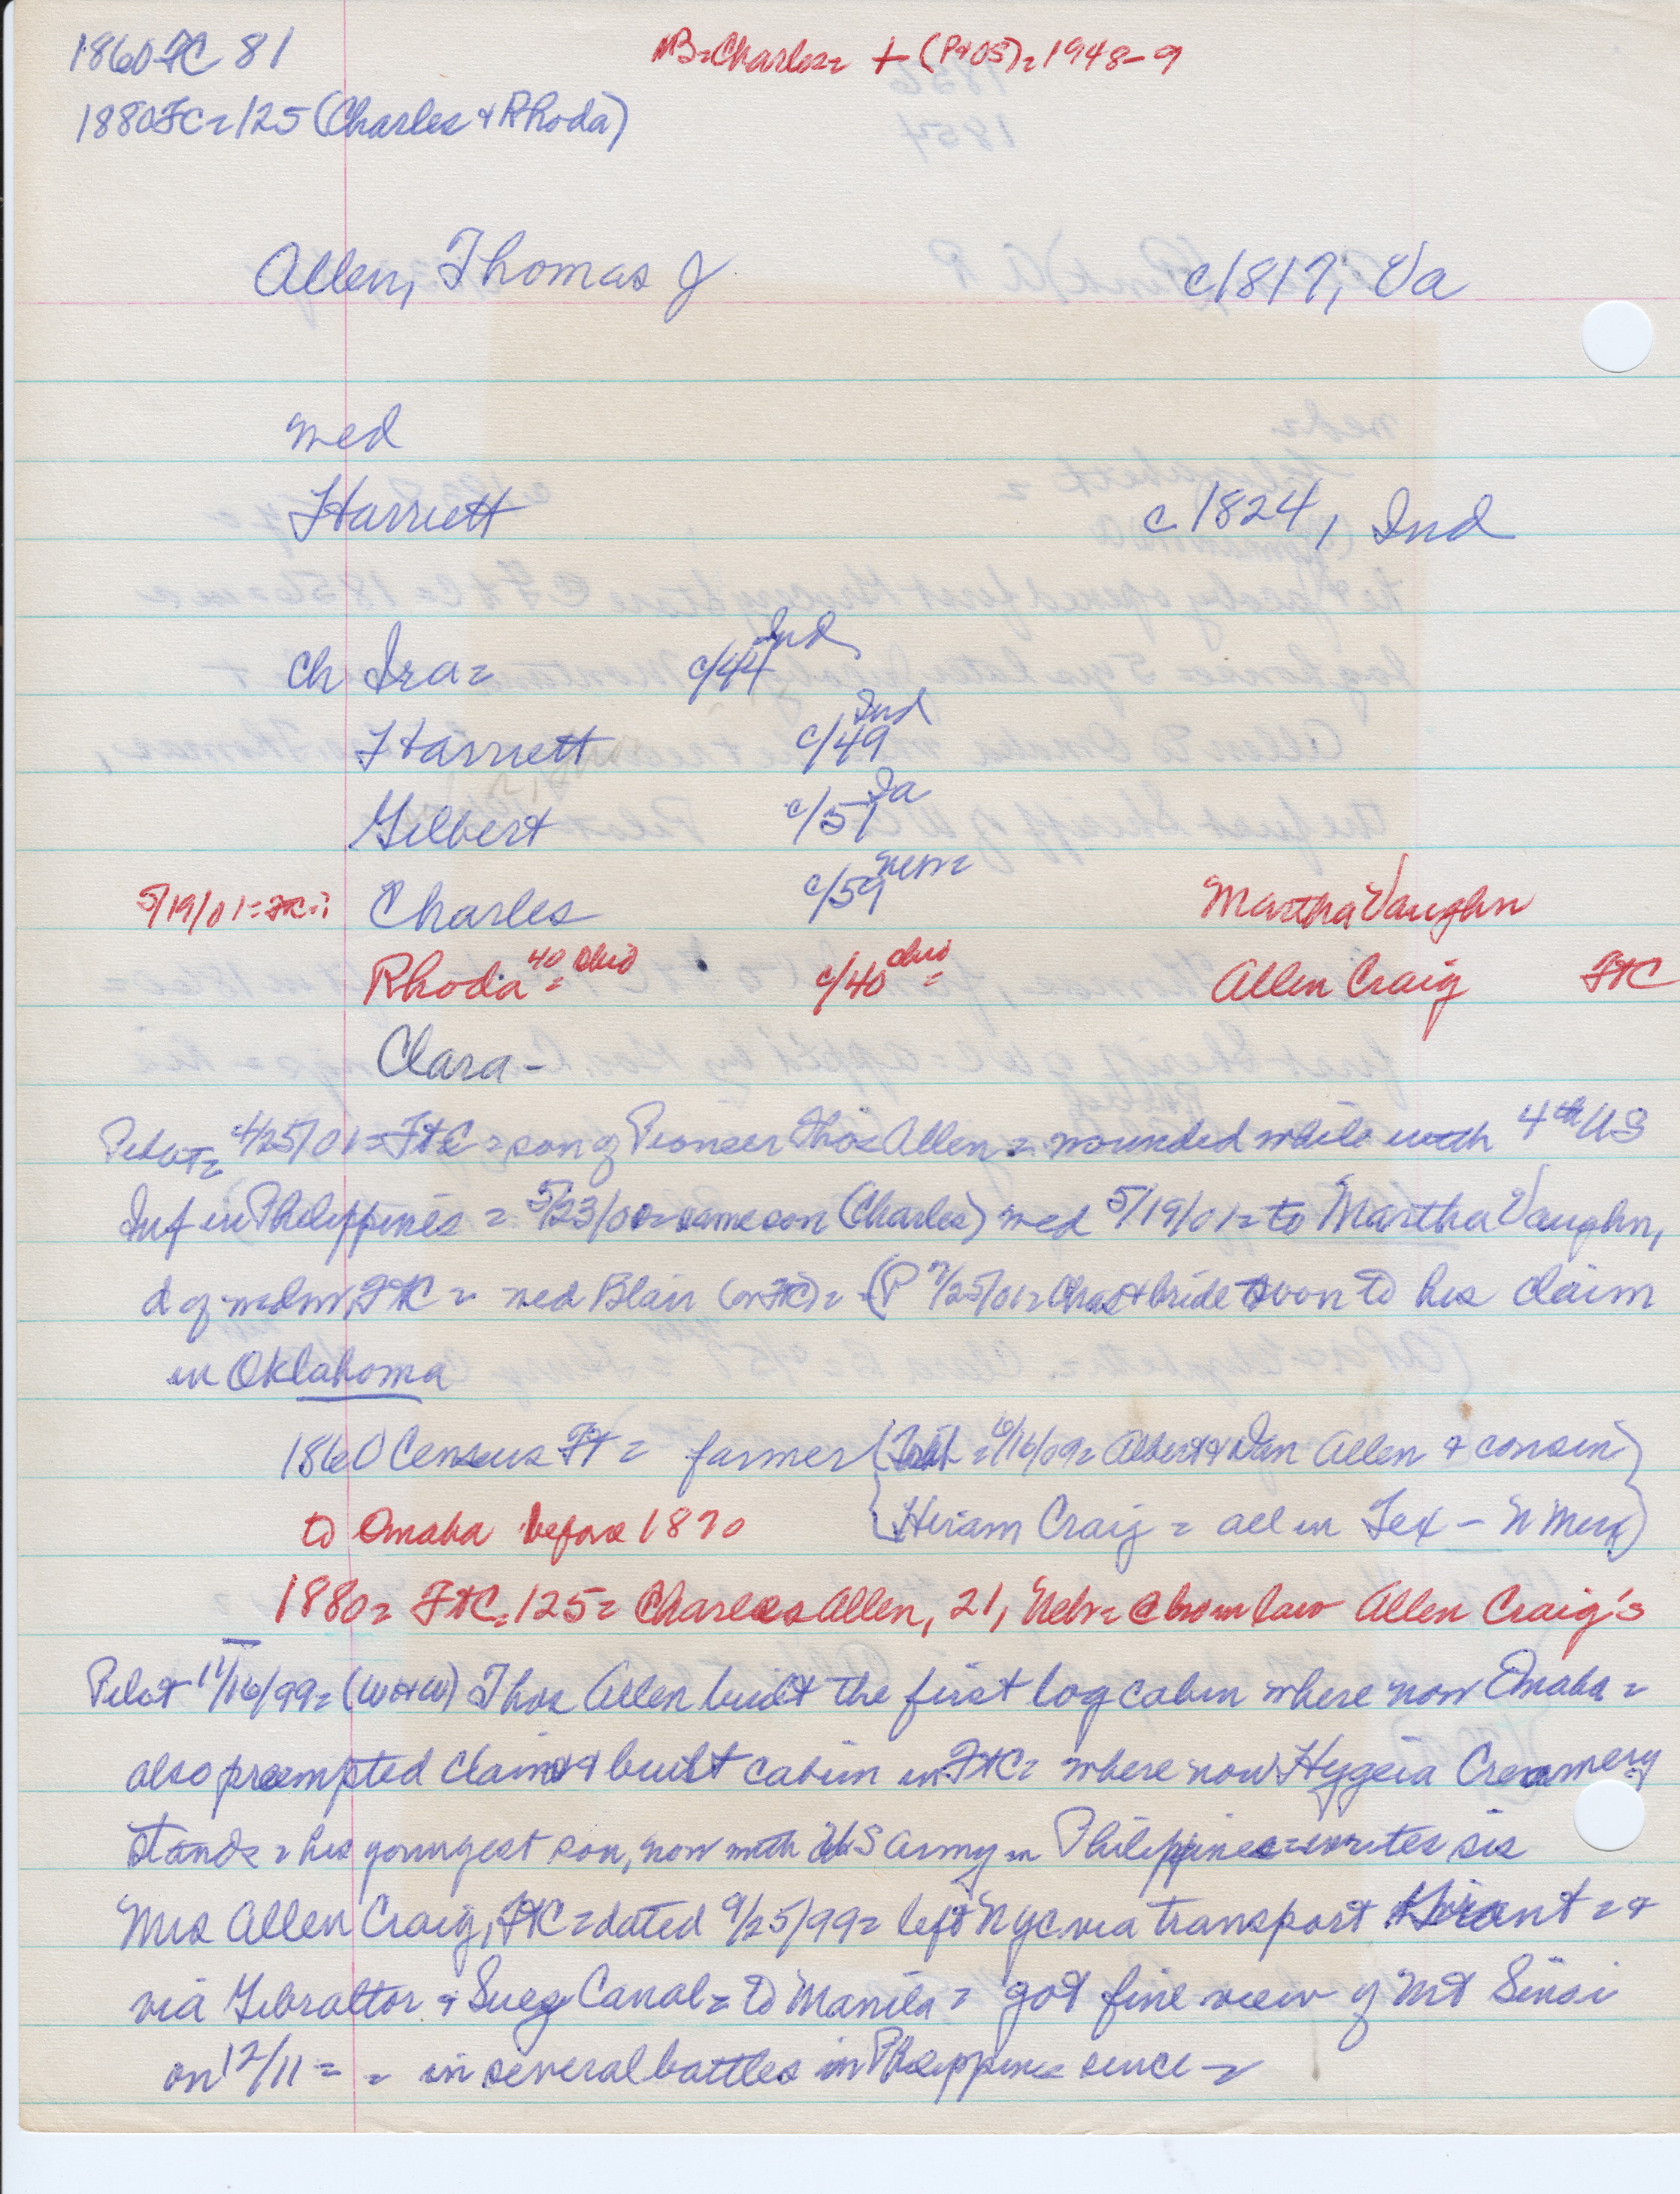 1860 FC 81
NB=Charles= + (P+OS)=1948-9
1880 FC=125 (Charles + Rhoda)
Allen, Thomas J c/1817, Va
med
Harriett c 1824, Ind
ch Ira= c/44 Ind
Harriett c/49 Ind
Gilbert c/51 Ia
5/19/01=FtC= Charles c/59 Nebr= Martha Vaughn
Rhoda=40=Ohio c/40 Ohio= Allen Craig FtC
Clara-
Pilot= 4/25/01=FtC=son of Pioneer Thos Allen=wounded while with 4th US
Inf in Philippines = 5/23/00=same son (Charles) med 5/19/01=to Martha Vaughn,
d of FtC = med Blair (or FtC)= (P 7/25/01=Chas+bride soon to his claim
in Oklahoma
1860 Census Ft= farmer { 6/16/09= Albert + Dan Allen + cousin }
to Omaha before 1870 { Hiram Craig = all in Tex - N Mex }
1880= FtC=125= Charles Allen, 21, Nebr= @ bro in law Allen Craig's
Pilot 11/16/99=(W+W) Thos Allen built the first log cabin where now Omaha=
also preempted claim + built cabin in FtC= where now Hygeia Creamery
stands= his youngest son, now with US Army in Philippines=writes sis
Mrs Allen Craig, FtC=dated 9/25/99= left NYC via transport Grant=+
via Gibraltor + Suez Canal= to Manila= got fine view of Mt Sinai
on 12/11= = in several battles in Philippines since=